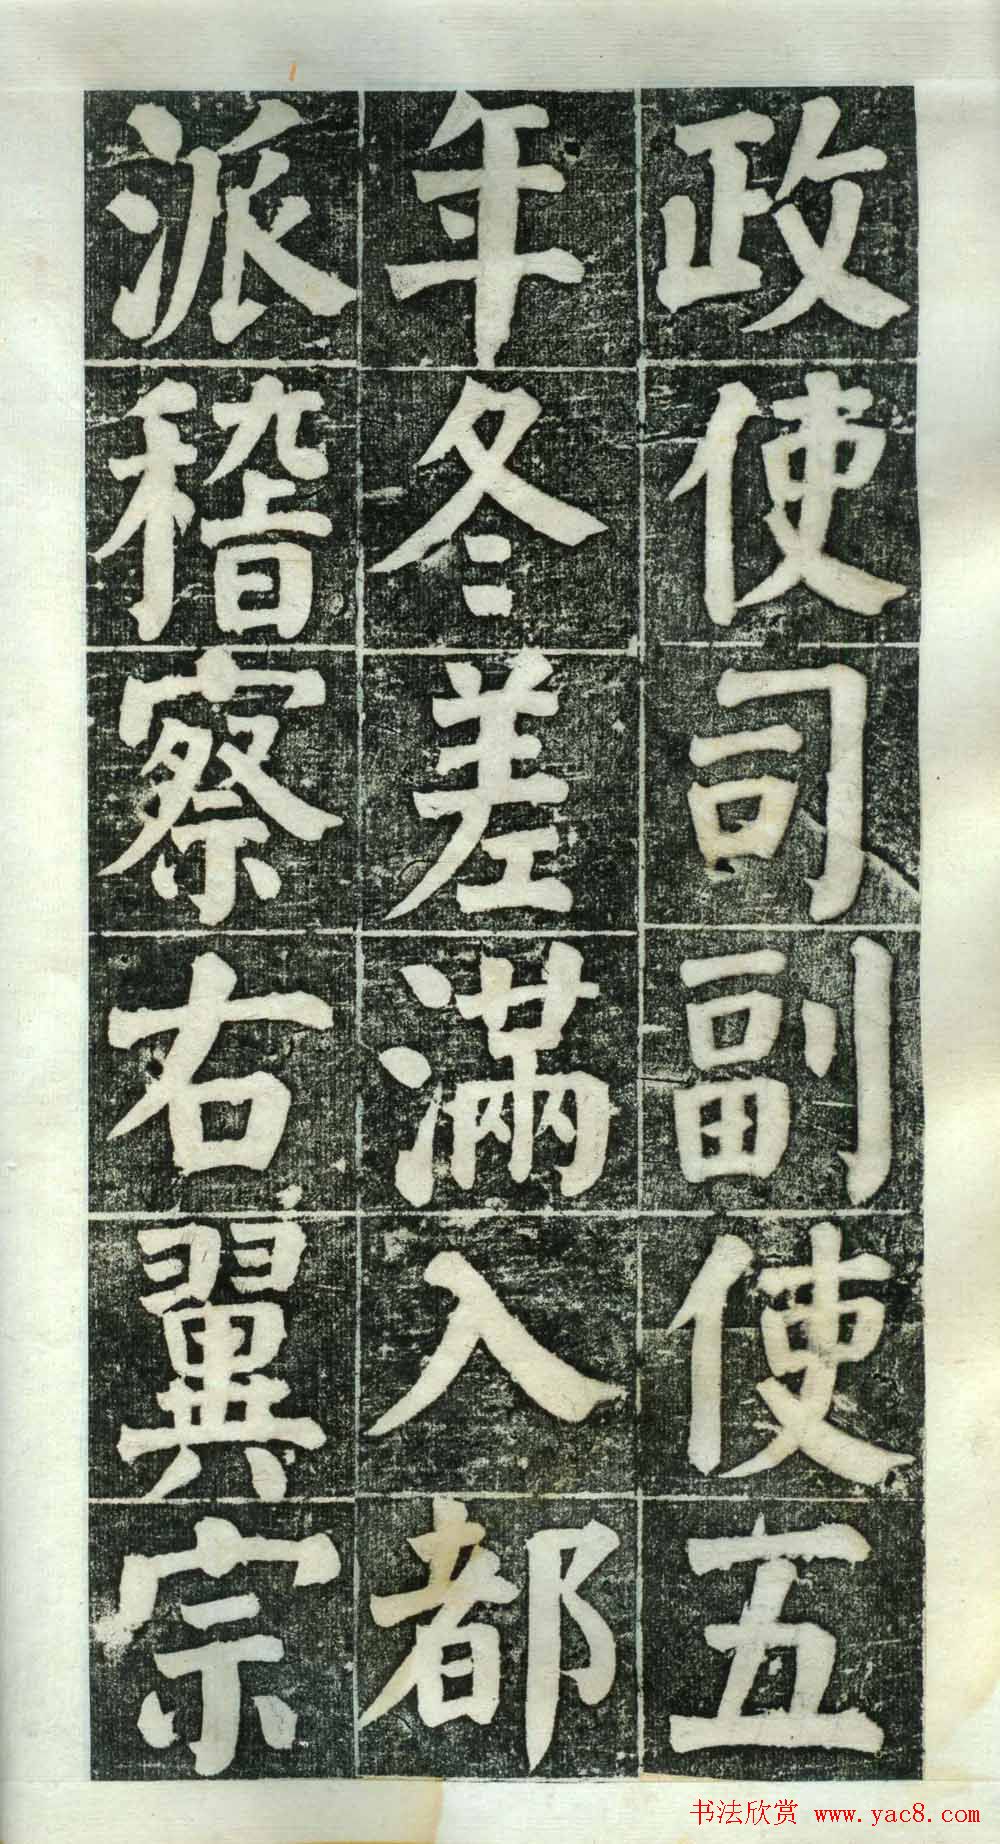 政使司副使五
年冬差滿入都
派稽察右翼宗
书法欣赏 www.yac8.com